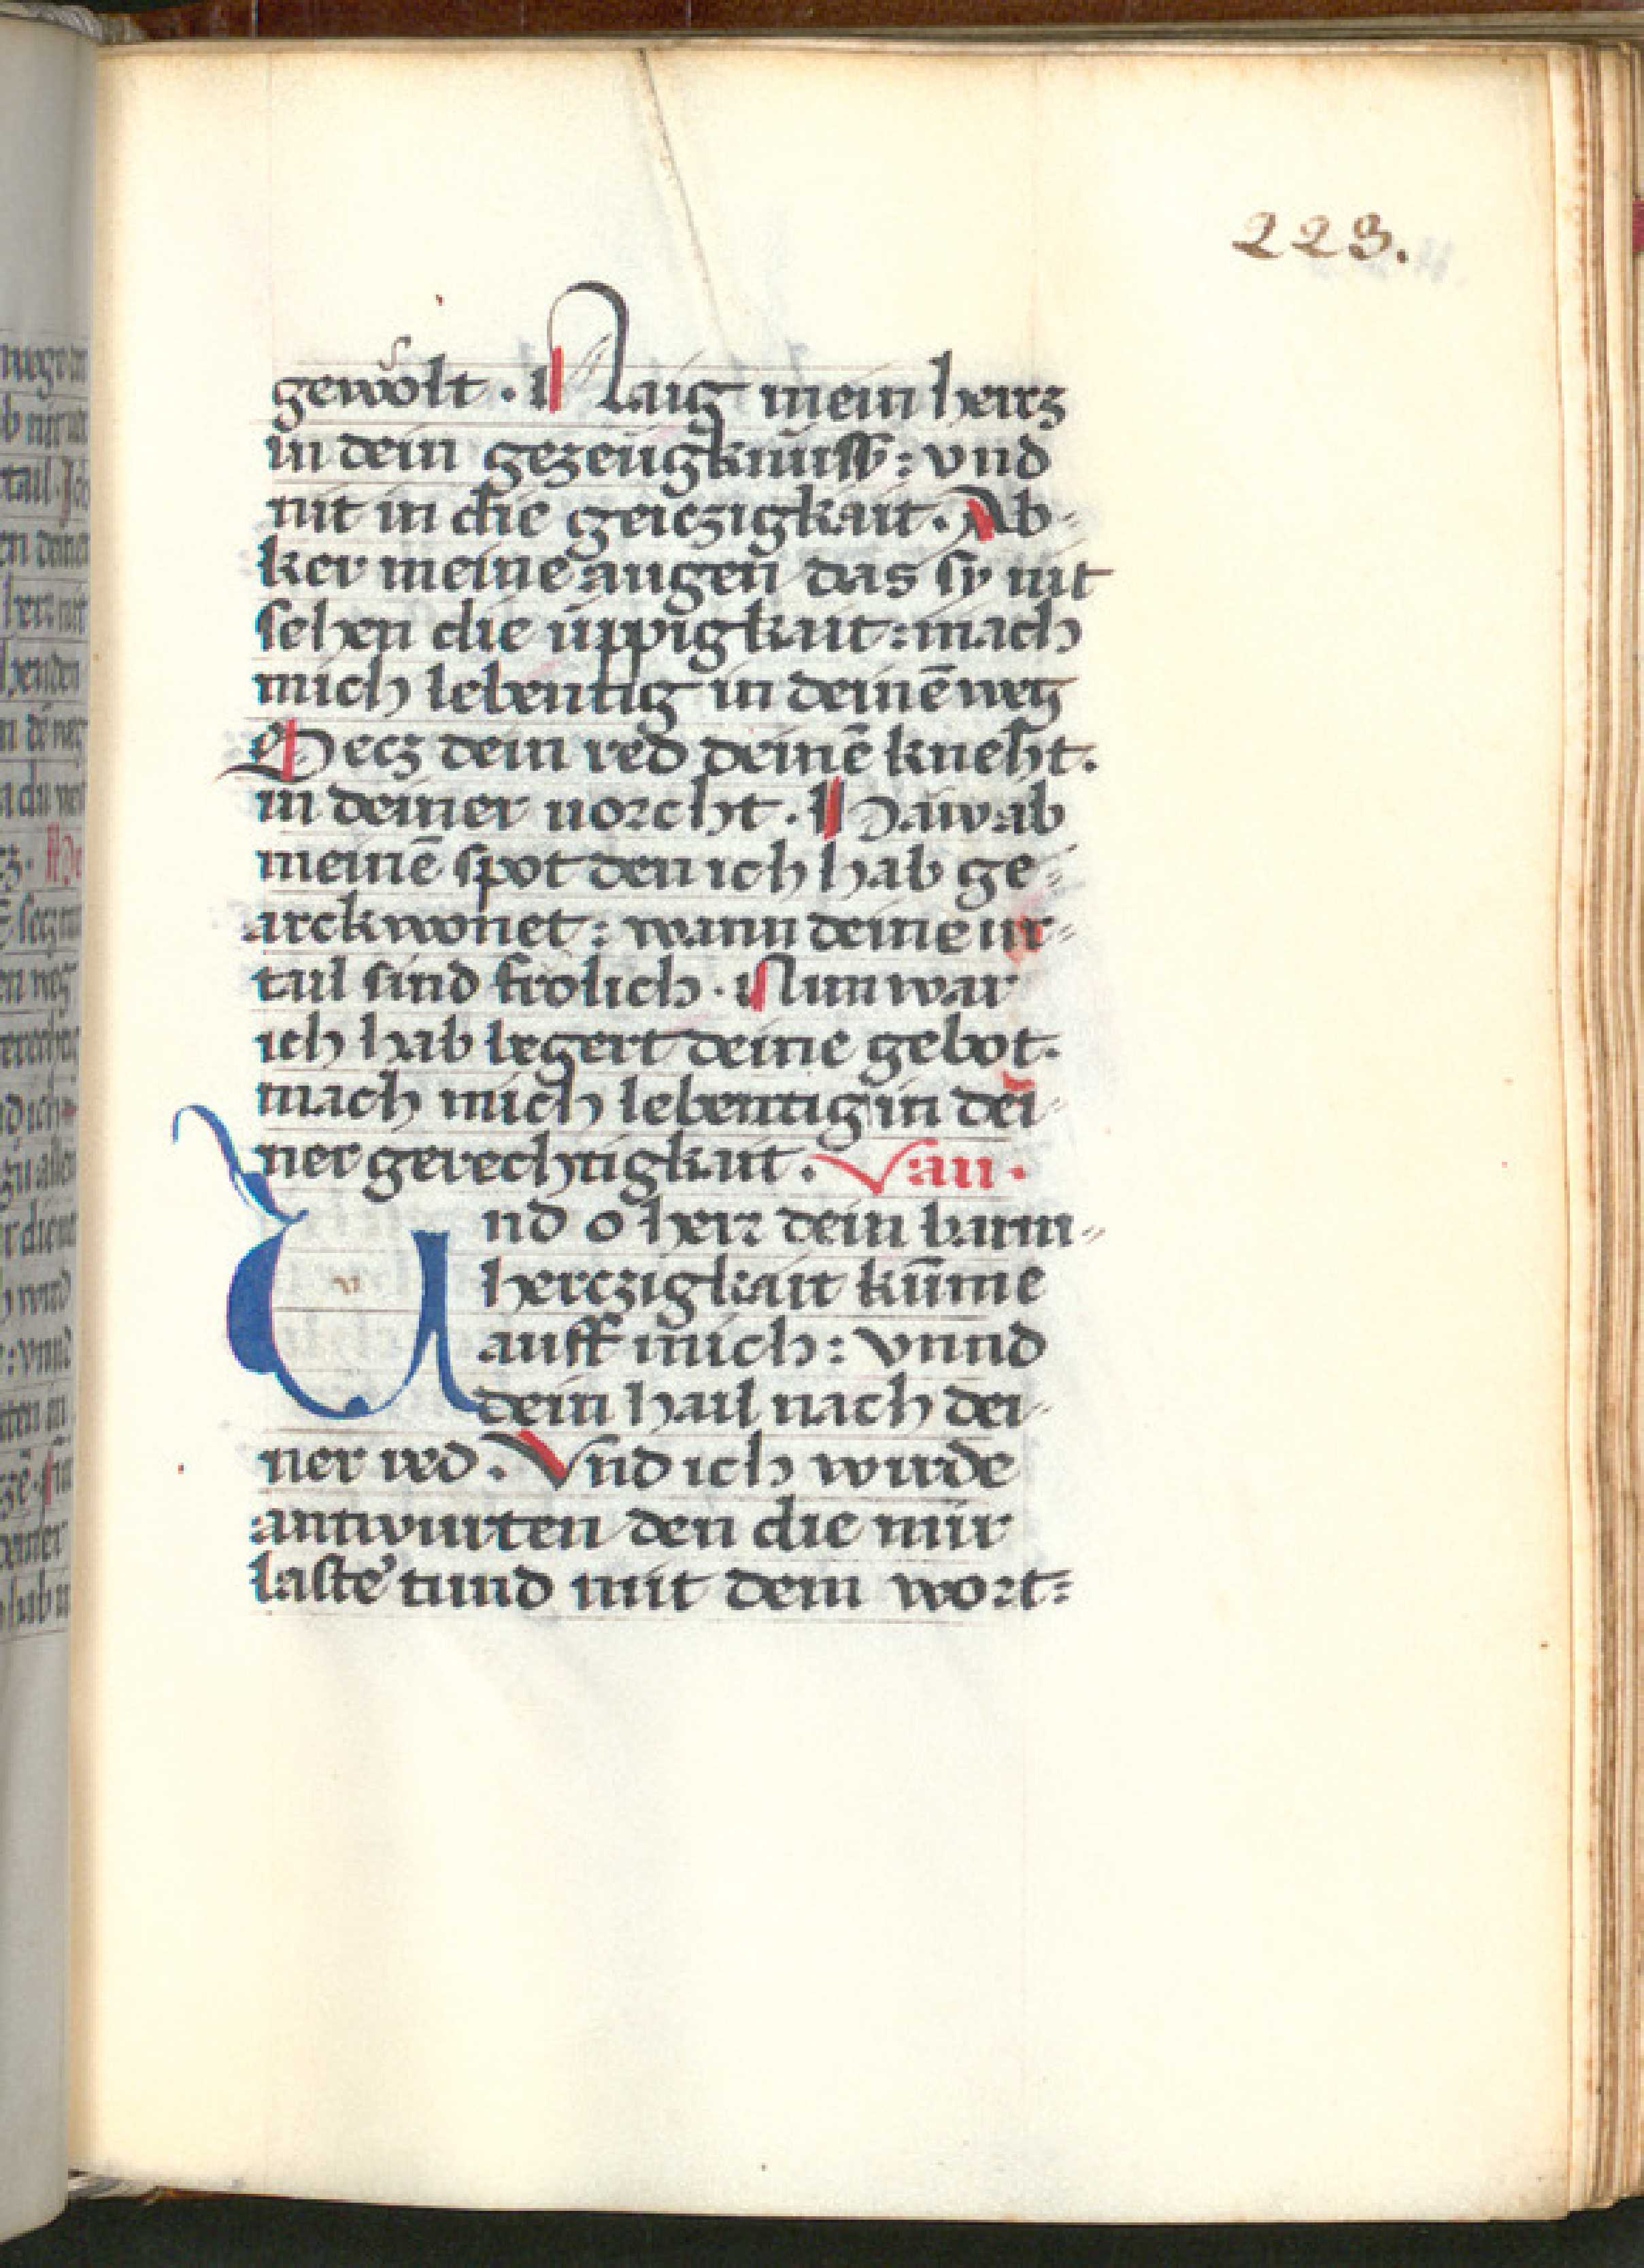 223.
gewölt . Naig mein hertz
in dein gezeügknüss : vnd
nit in die geiczigkait . Ab=
ker meine augen das sy nit
sehen die üppigkait : mach
mich lebentig in deinē weg
Secz dein red deinē kneht .
in deiner uorcht . Haw ab
meinē spot den ich hab ge=
arckwonet : wann deine ur=
tail sind frölich . Nun war
ich hab begert deine gebot .
mach mich lebentig in dei=
ner gerechtigkait . Vau .
Und o herr dein barm=
herczigkait kūme
auff mich : vnnd
dein hail nach dei=
ner red . Vnd ich wirde
antwurten den die mir
laste' tund mit dem wort=